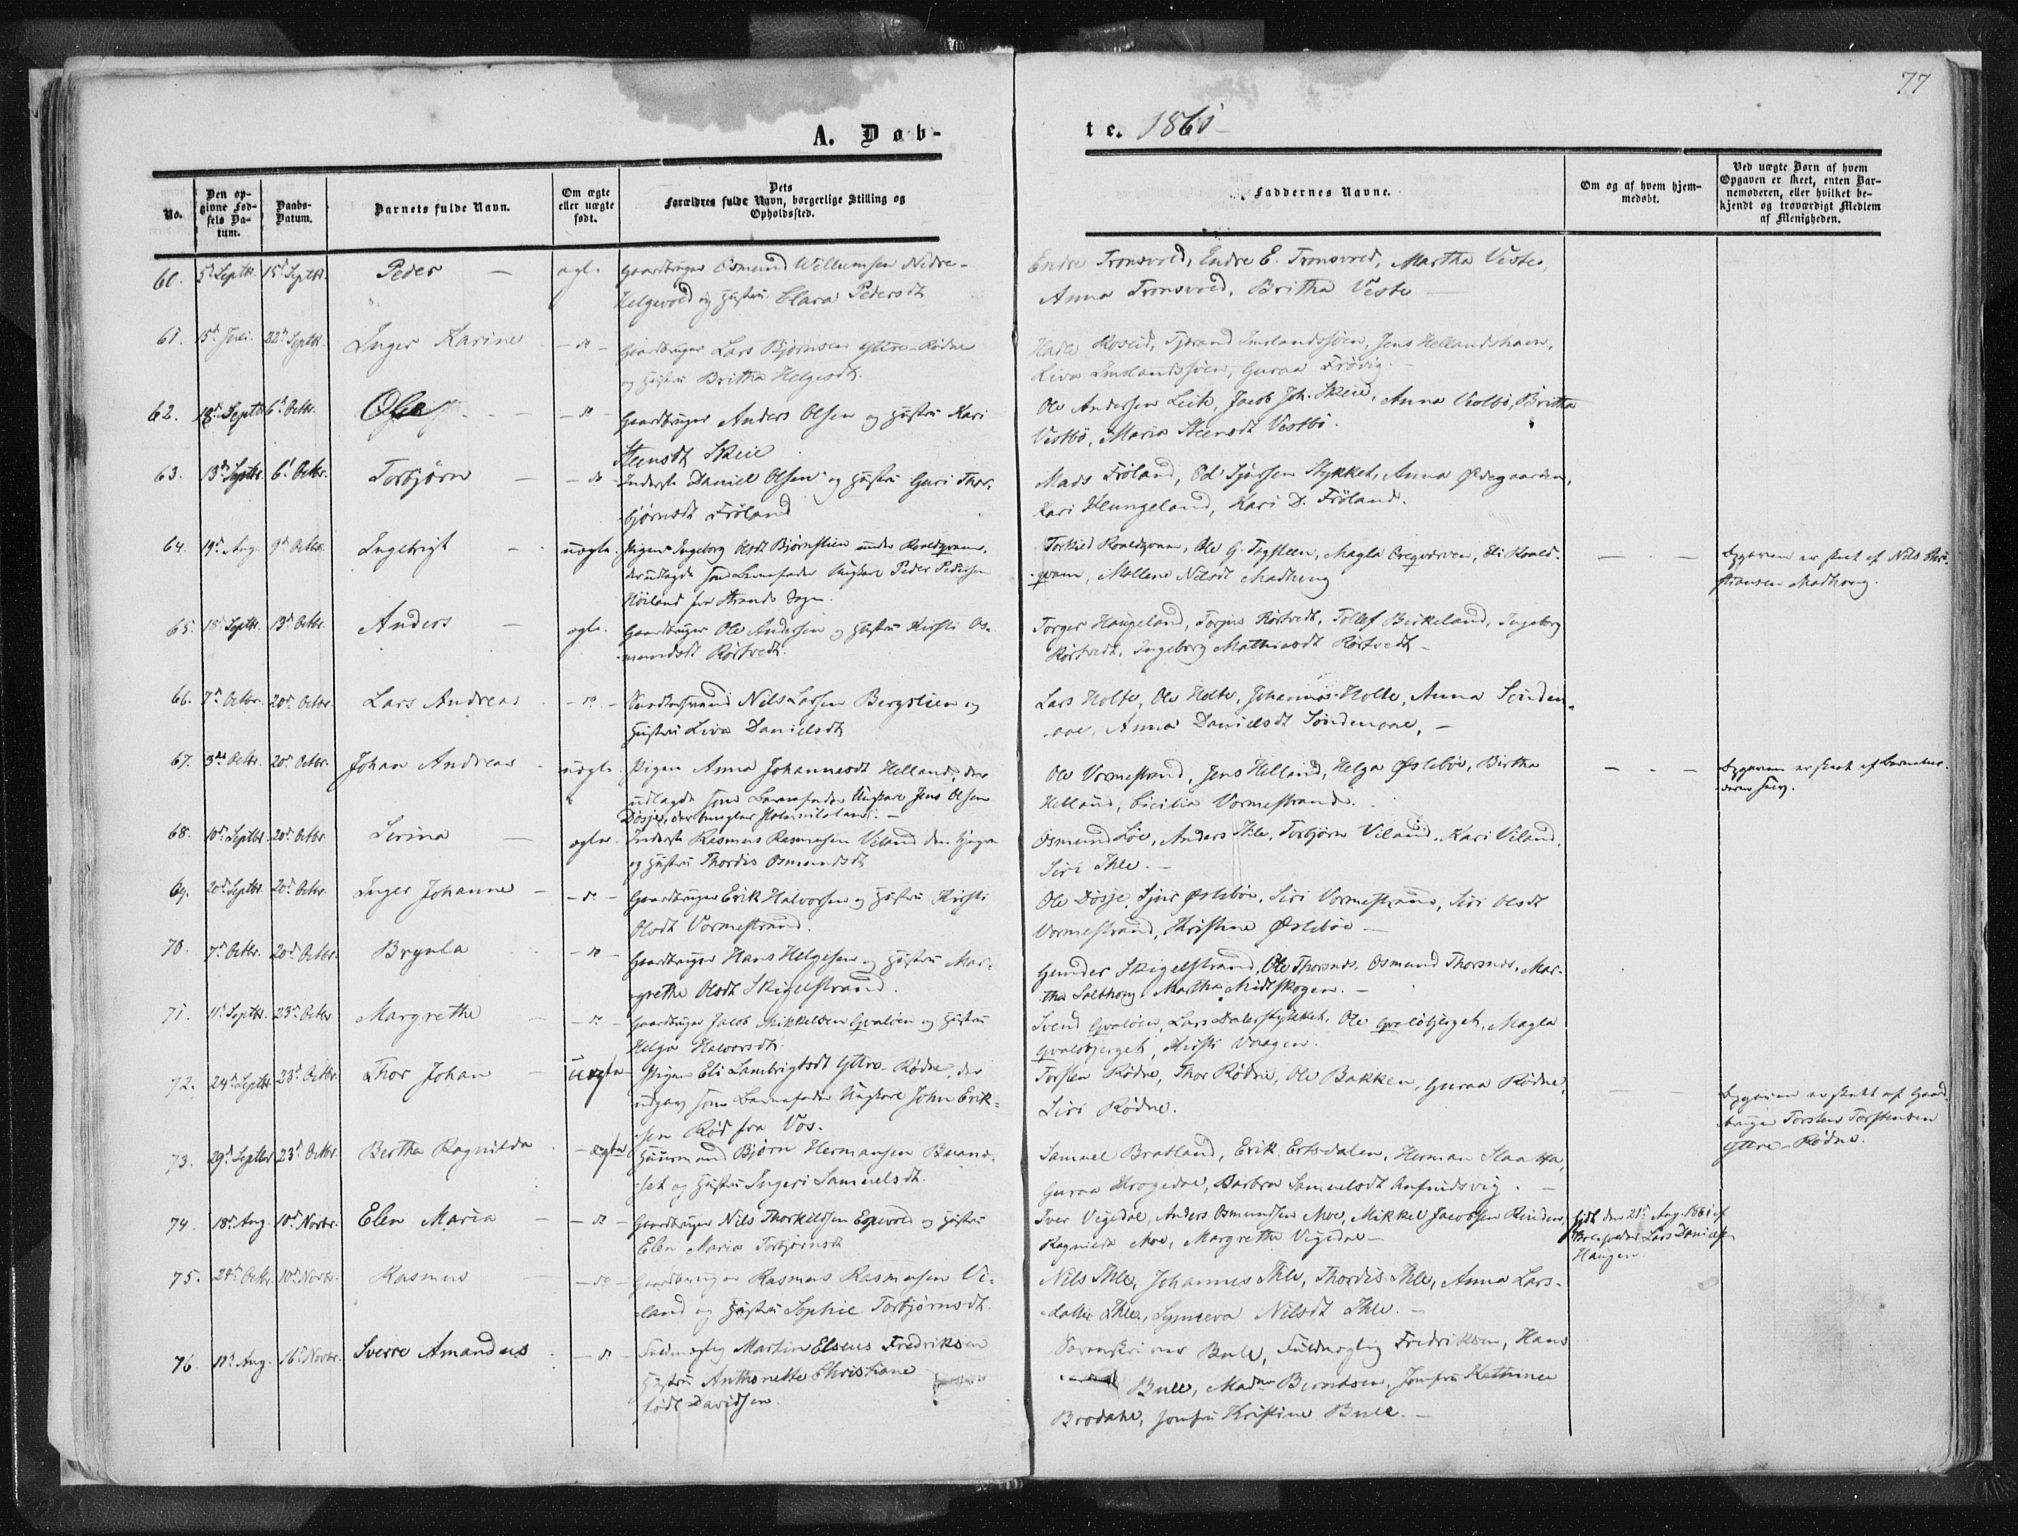 77
A. Døb-
te. 1861
No.
Den op-
givne Fød-
sels Da-
tum.
Daabs-
Datum.
Barnets fulde Navn.
Om ægte
eller uægte
født.
Dets
Forældres fulde Navn, borgerlige Stilling og
Opholdssted.
Faddernes Navne.
Om og af hvem hjem-
medøbt.
Ved uægte Børn af hvem
Opgaven er skeet, enten Bar-
nemoderen, eller hvilket be-
kjendt og troværdigt Medlem
af Menigheden.
60. 5d Septbr. 15d Septbr. Peder — ægte Gaardbruger Osmund Willumsen Nedre-
Helgevold og Hustru Clara Pedersdt
Endre Tronsvold, Endre E. Tronsvold, Martha Veste,
Anna Tronsvold, Britha Veste —
61. 15d Juli. 22d Septbr. Inger Karine - do - Gaardbruger Lars Bjørnsen Yttre-Rødne
og Hustru Britha Helgesdt.
Roseid, Tjerand Imslandssjøen, Jens Hellandshavn,
Liva Imslandssjøen, Guraa Frøvig. -
62. 18d Septbr 6d Octbr. Ole - do - Gaardbruger Anders Olsen og Hustru Kari
Steensdt Skeie
Ole Andersen Leite, Jacob Joh. Skeie, Anna Vestbø, Britha
Vestbø, Maria Steensdt Vestbø.
63. 13d Septbr. 6d Octbr. Torbjørn - do - Inderste Daniel Olsen og Hustru Guri Thor-
bjørnsdt Frøland
Mads Frøland, Ed Sjursen Stykket, Anna Ødegaarden,
Kari Heungeland, Kari D. Frøland.
64. 19d Aug. 9d Octbr. Ingebrigt - uægte. Pigen Ingeborg Olsdt Bjørnstien under Roaldqvam,
der udlagde som Barnefader Ungkarl Peder Pedersen
Høiland fra Strands Sogn.
Torkild Roaldqvam, Ole G. Tegsteen, Magla Bregværven, Eli Roald-
qvam, Mallene Nilsdt Madhoug
— — Opgaven er skeet af Nils Chri-
stiansen Madhoug.
65. 18d Septbr. 13d Octbr. Anders - ægte. Gaardbruger Ole Andersen og Hustru Kirsti Os-
mundsdt Rørtvedt.
Torger Haugeland, Torgius Rørtvedt, Tollef Birkeland, Ingeborg
Rørtvedt, Ingeborg Mathiasdt Rørtvedt -
66. 7d Octbr. 20d Octbr Lars Andreas - do - Nils Larsen Bergslien og
Hustru Liva Danielsdt
Lars Holte, Ole Holte, Johannes Holte, Anna Sønden-
aae, Anna Danielsdt Søndenaae, -
67. 3die Octbr. 20d Octbr. Johan Andreas - uægte. Pigen Anna Johannesdt Helland, der
udlagde som Barnefader Ungkarl Jens Olsen
Døsje,
Ole Vormestrand, Jens Helland, Helga Øslebøe, Birtha
Helland, Cicilia Vormestrand.
— - — Opgaven er skeet af Barnemo-
deren selv.
68. 10d Septbr 20d Octbr. Serina — ægte. Inderste Rasmus Rasmussen Viland
og Hustru Thordis Osmundsdt
Osmund Løe, Anders Ihle, Torbjørn Viland, Kari Viland,
Siri Ihle. -
69. 20d Septbr. 20d Octbr. Inger Johanne - do - Gaardbruger Erik Halvorsen og Hustru Kirsti
Olsdt Vormestrand.
Ole Døsje, Sjur Øslebøe, Siri Vormestrand, Siri Olsdt
Vormestrand, Christine Øslebøe —
70. 7d Octbr. 20d Octbr. Brynla - do - Gaardbruger Hans Helgesen og Hustru Mar-
grethe Olsdt Skigelstrand.
Gunder Skigelstrand, Ole Thorsnes, Osmund Thorsnes, Mar-
tha Salthoug, Martha Midtskogen. -
71. 11d Septbr. 23d Octbr Margrethe - do - Gaardbruger Jacob Mikkelsen Gvaløen og Hustru
Helga Halvorsdt.
Svend Gvaløen, Lars Dalestykket, Ole Gvaløbjerget, Magla
Gvaløbjerget, Kirsti Vaagen.
72. 24d Septbr. 23d Octbr. Thor Johan - uægte Pigen Eli Lambrigtsdt Yttre-Rødne, der
udgav som Barnefader Ungkarl John Erik-
sen Rød fra Vos.
Torsten Rødne, Thor Rødne, Ole Bakken, Guraa Rødne,
Siri Rødne.
— Opgaven er skett af Gaard-
bruger Torsten Torstensen
Yttre-Rødne.
73. 29d Septbr 23d Octbr. Bertha Ragnilda - ægte Huusmand Bjørn Hermansen Buand-
set og Hustru Ingeri Samuelsdt.
Samuel Bratland, Erik Ertsdalen, Herman Slaatta,
Guraa Krogedal, Barbra Samuelsdt Anfindsvig. —
74. 18d Aug. 10d Novbr. Elen Maria - do - Gaardbruger Nils Thorkildsen Espevold og Hustru
Elen Maria Torbjørnsdt
Iver Vigedal, Anders Osmundsen Moe, Mikkel Jacobsen Reinden,
Ragnilda Moe, Margretha Vigedal —
Hjdt. den 21d Aug. 1861 af
Lars Daniels
Haugen.
75. 24d Octbr. 10d Novbr. Rasmus - do - Gaardbruger Rasmus Rasmussen Vi-
land og Hustru Sophie Torbjørnsdt.
Nils Ihle, Johannes Ihle, Thordis Ihle, Anna Lars-
datter Ihle, Synneva Nilsdt Ihle. -
76. 11d Aug. 16d Novbr. Sverre Amandus - do - Fuldmægtig Martin Elseus Fredriksen
Hustru Anthonette Christiane
født Davidsen.
Sorenskriver Bull, Fuldmægtig Fredriksen, Hans
Bull, Madme Berntsen, Jomfru Kathrine
Brodahl, Jomfru Kristine Bull. -